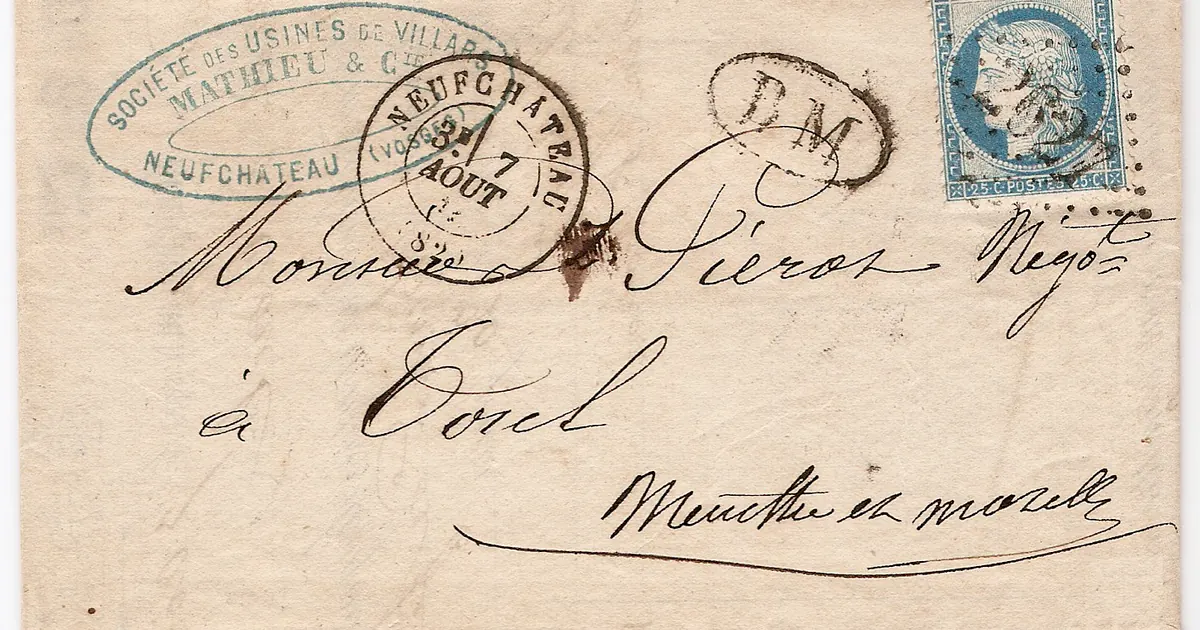 SOCIÉTÉ DES USINES DE VILLARS
MATHIEU & Cie
NEUFCHATEAU (VOSGES)
NEUFCHATEAU
3E
7
AOUT
(82)
D M
25 C POSTES 25 C
2621
Monsieur Piéros Négot
à Toul
Meurthe et moselle